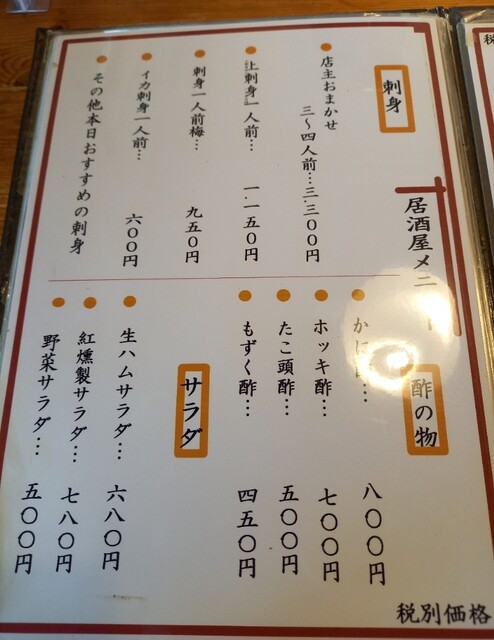 居酒屋メニュー
刺身
店主おまかせ
三〜四人前…三.三〇〇円
上刺身一人前… 一.一五〇円
刺身一人前梅… 九五〇円
イカ刺身一人前… 六〇〇円
その他本日おすすめの刺身
酢の物
かに酢… 八〇〇円
ホッキ酢… 七〇〇円
たこ頭酢… 五〇〇円
もずく酢… 四五〇円
サラダ
生ハムサラダ… 六八〇円
紅燻製サラダ… 七八〇円
野菜サラダ… 五〇〇円
税別価格
税